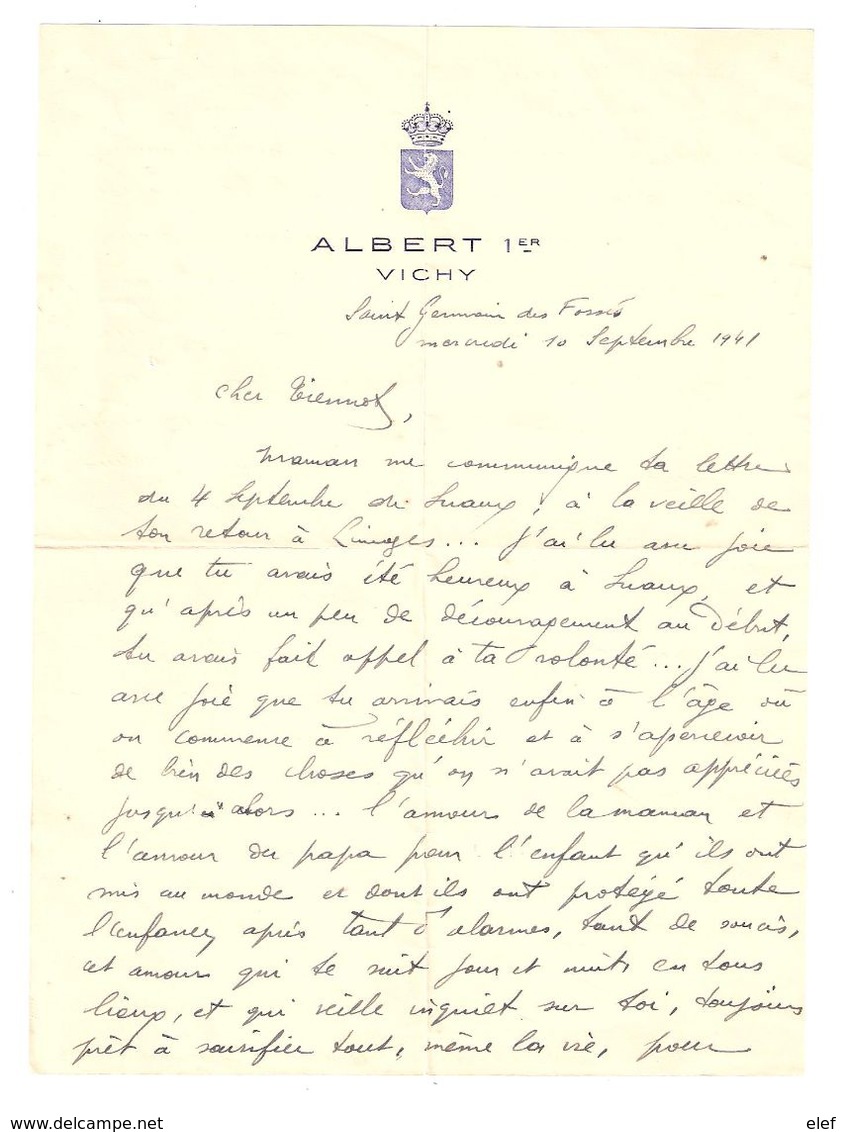 ALBERT 1ER
VICHY
Saint Germain des Fossés
mercredi 10 Septembre 1941
Cher Tiennot,
Maman me communique ta lettre
du 4 Septembre de, à la veille de
ton retour à Limoges... J'ai lu avec joie
que tu avais été heureux à, et
qu'après un peu de découragement au Début,
tu avais fait appel à ta volonté... J'ai lu
avec joie que tu arrivais enfin à l'âge où
on commence à réfléchir et à s'apercevoir
de bien des choses qu'on n'avait pas appréciées
jusqu'à alors... l'amour de la maman et
l'amour du papa pour l'enfant qu'ils ont
mis au monde et dont ils ont protégé toute
l'enfance, après tant d'alarmes, tant de soucis,
cet amour qui te suit jour et nuit, en tous
lieux, et qui veille inquiet sur toi, toujours
prêt à sacrifier tout, même la vie, pour
www.delcampe.net
elef